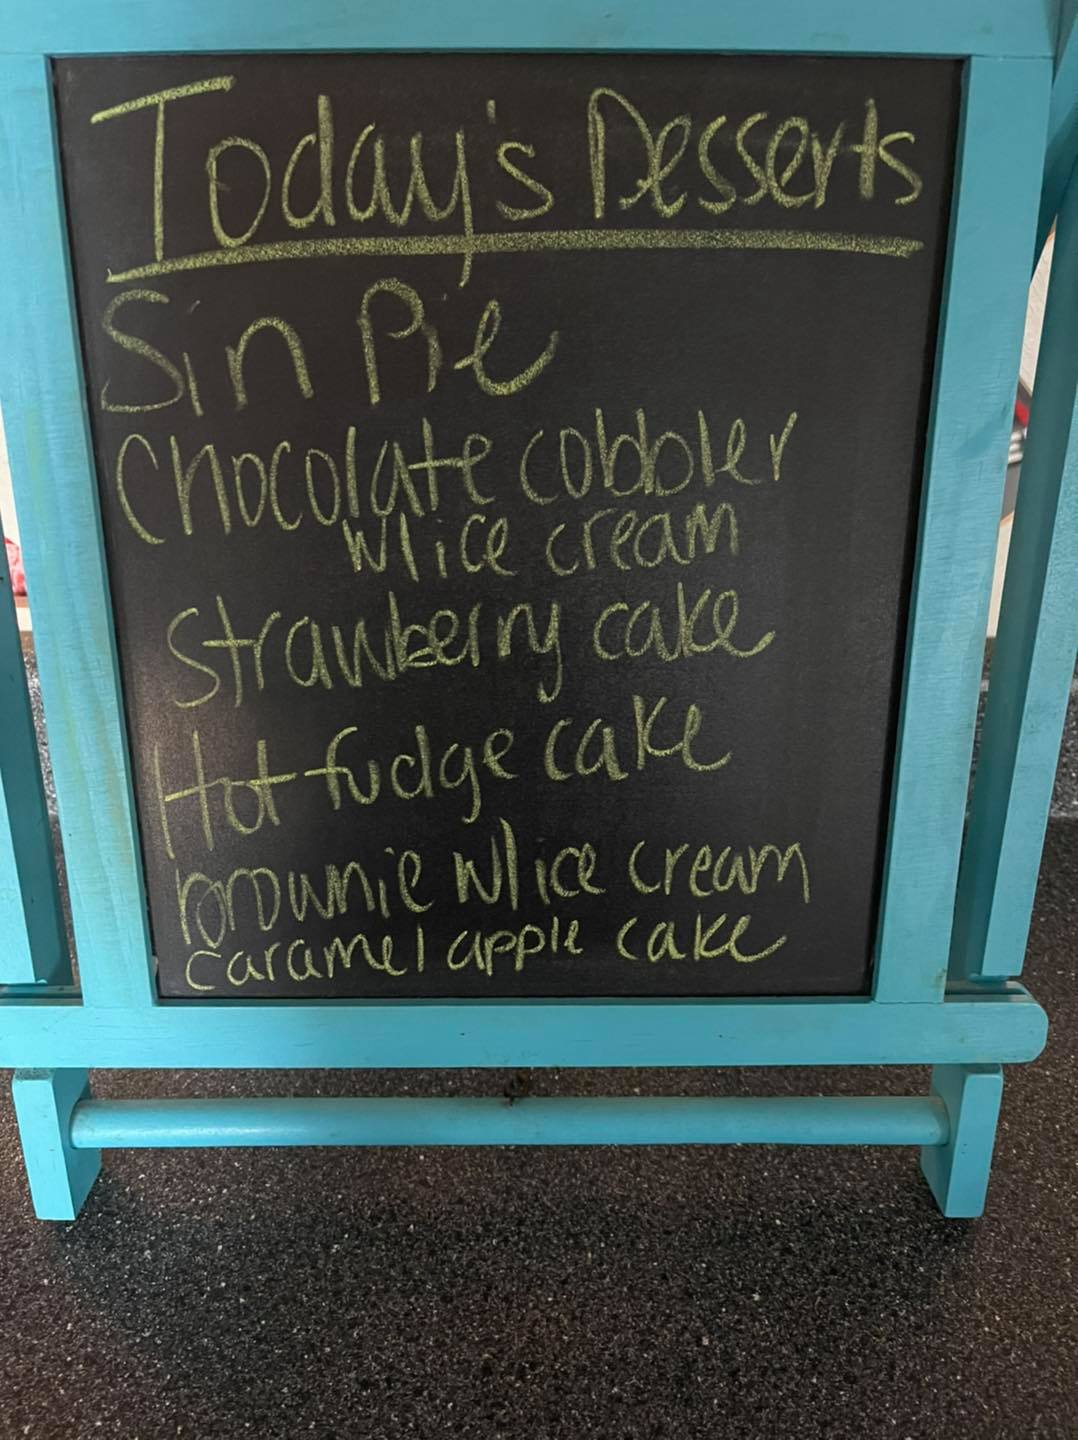 Today's Desserts
Sin Pie
Chocolate cobbler
w/ice cream
Strawberry cake
Hot fudge cake
brownie w/ice cream
caramel apple cake